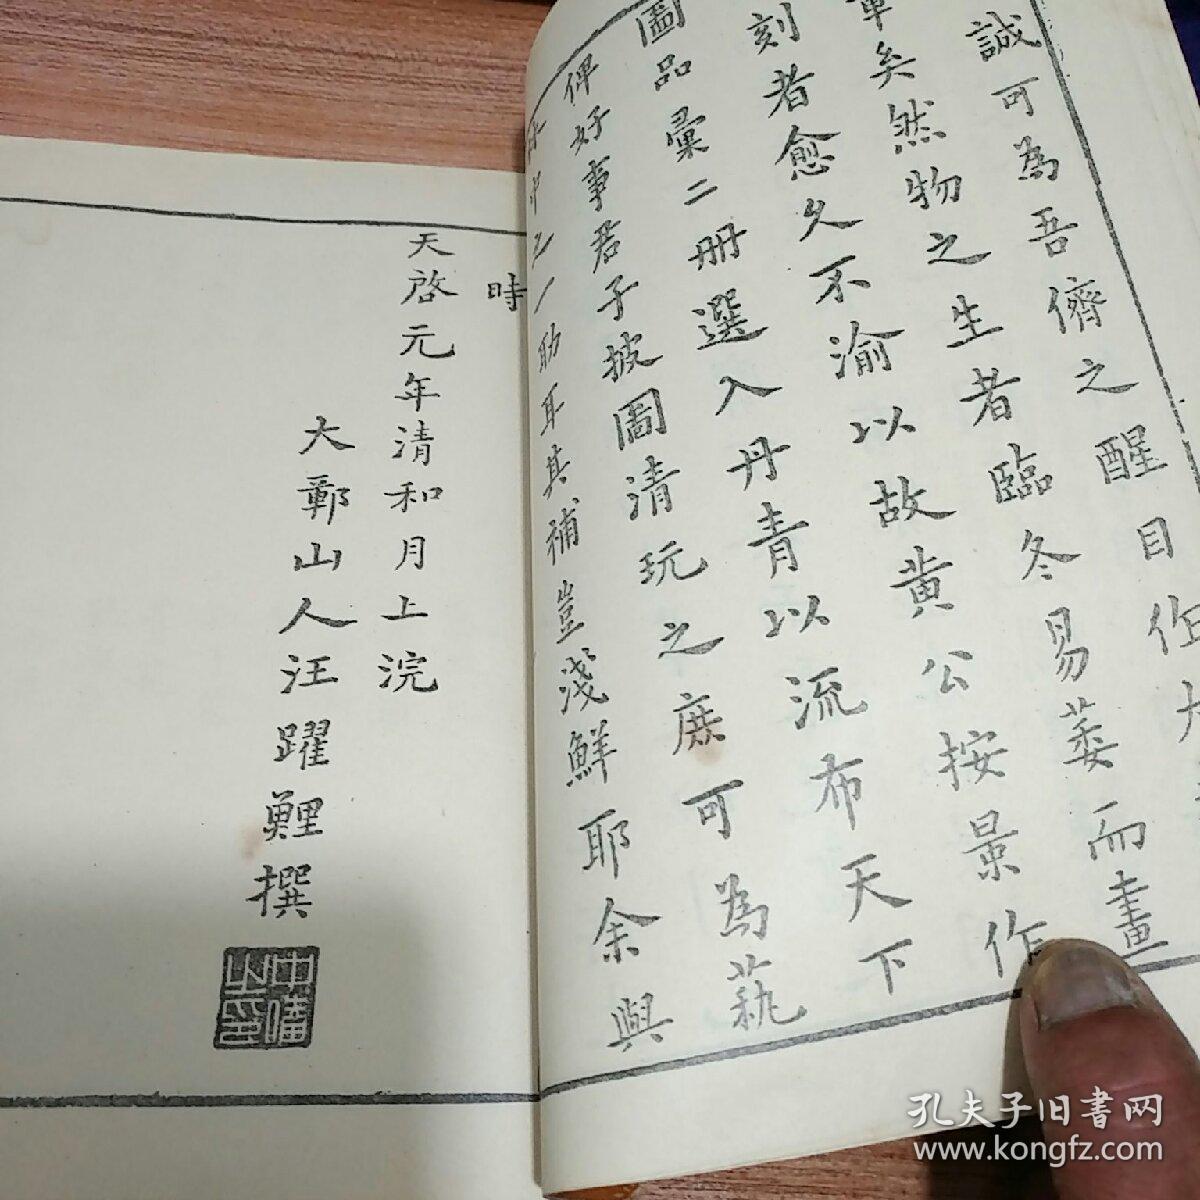 目作
誠可為吾儕之醒
矣然物之生者臨冬易萎而畫
刻者愈久不渝以故黄公按景作
圖品彙二册選入丹青以流布天下
俾好事君子披圖清玩之庶可為蓺
林中之一助耳其補豈淺鮮耶余與
時
天啓元年清和月上浣
大鄣山人汪躍鯉撰
孔夫子旧书网
www.kongfz.com